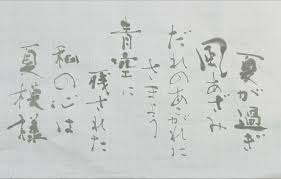 夏が過ぎ
風あざみ
だれのあこがれに
さまよう
青空に
残された
私の心は
夏模様